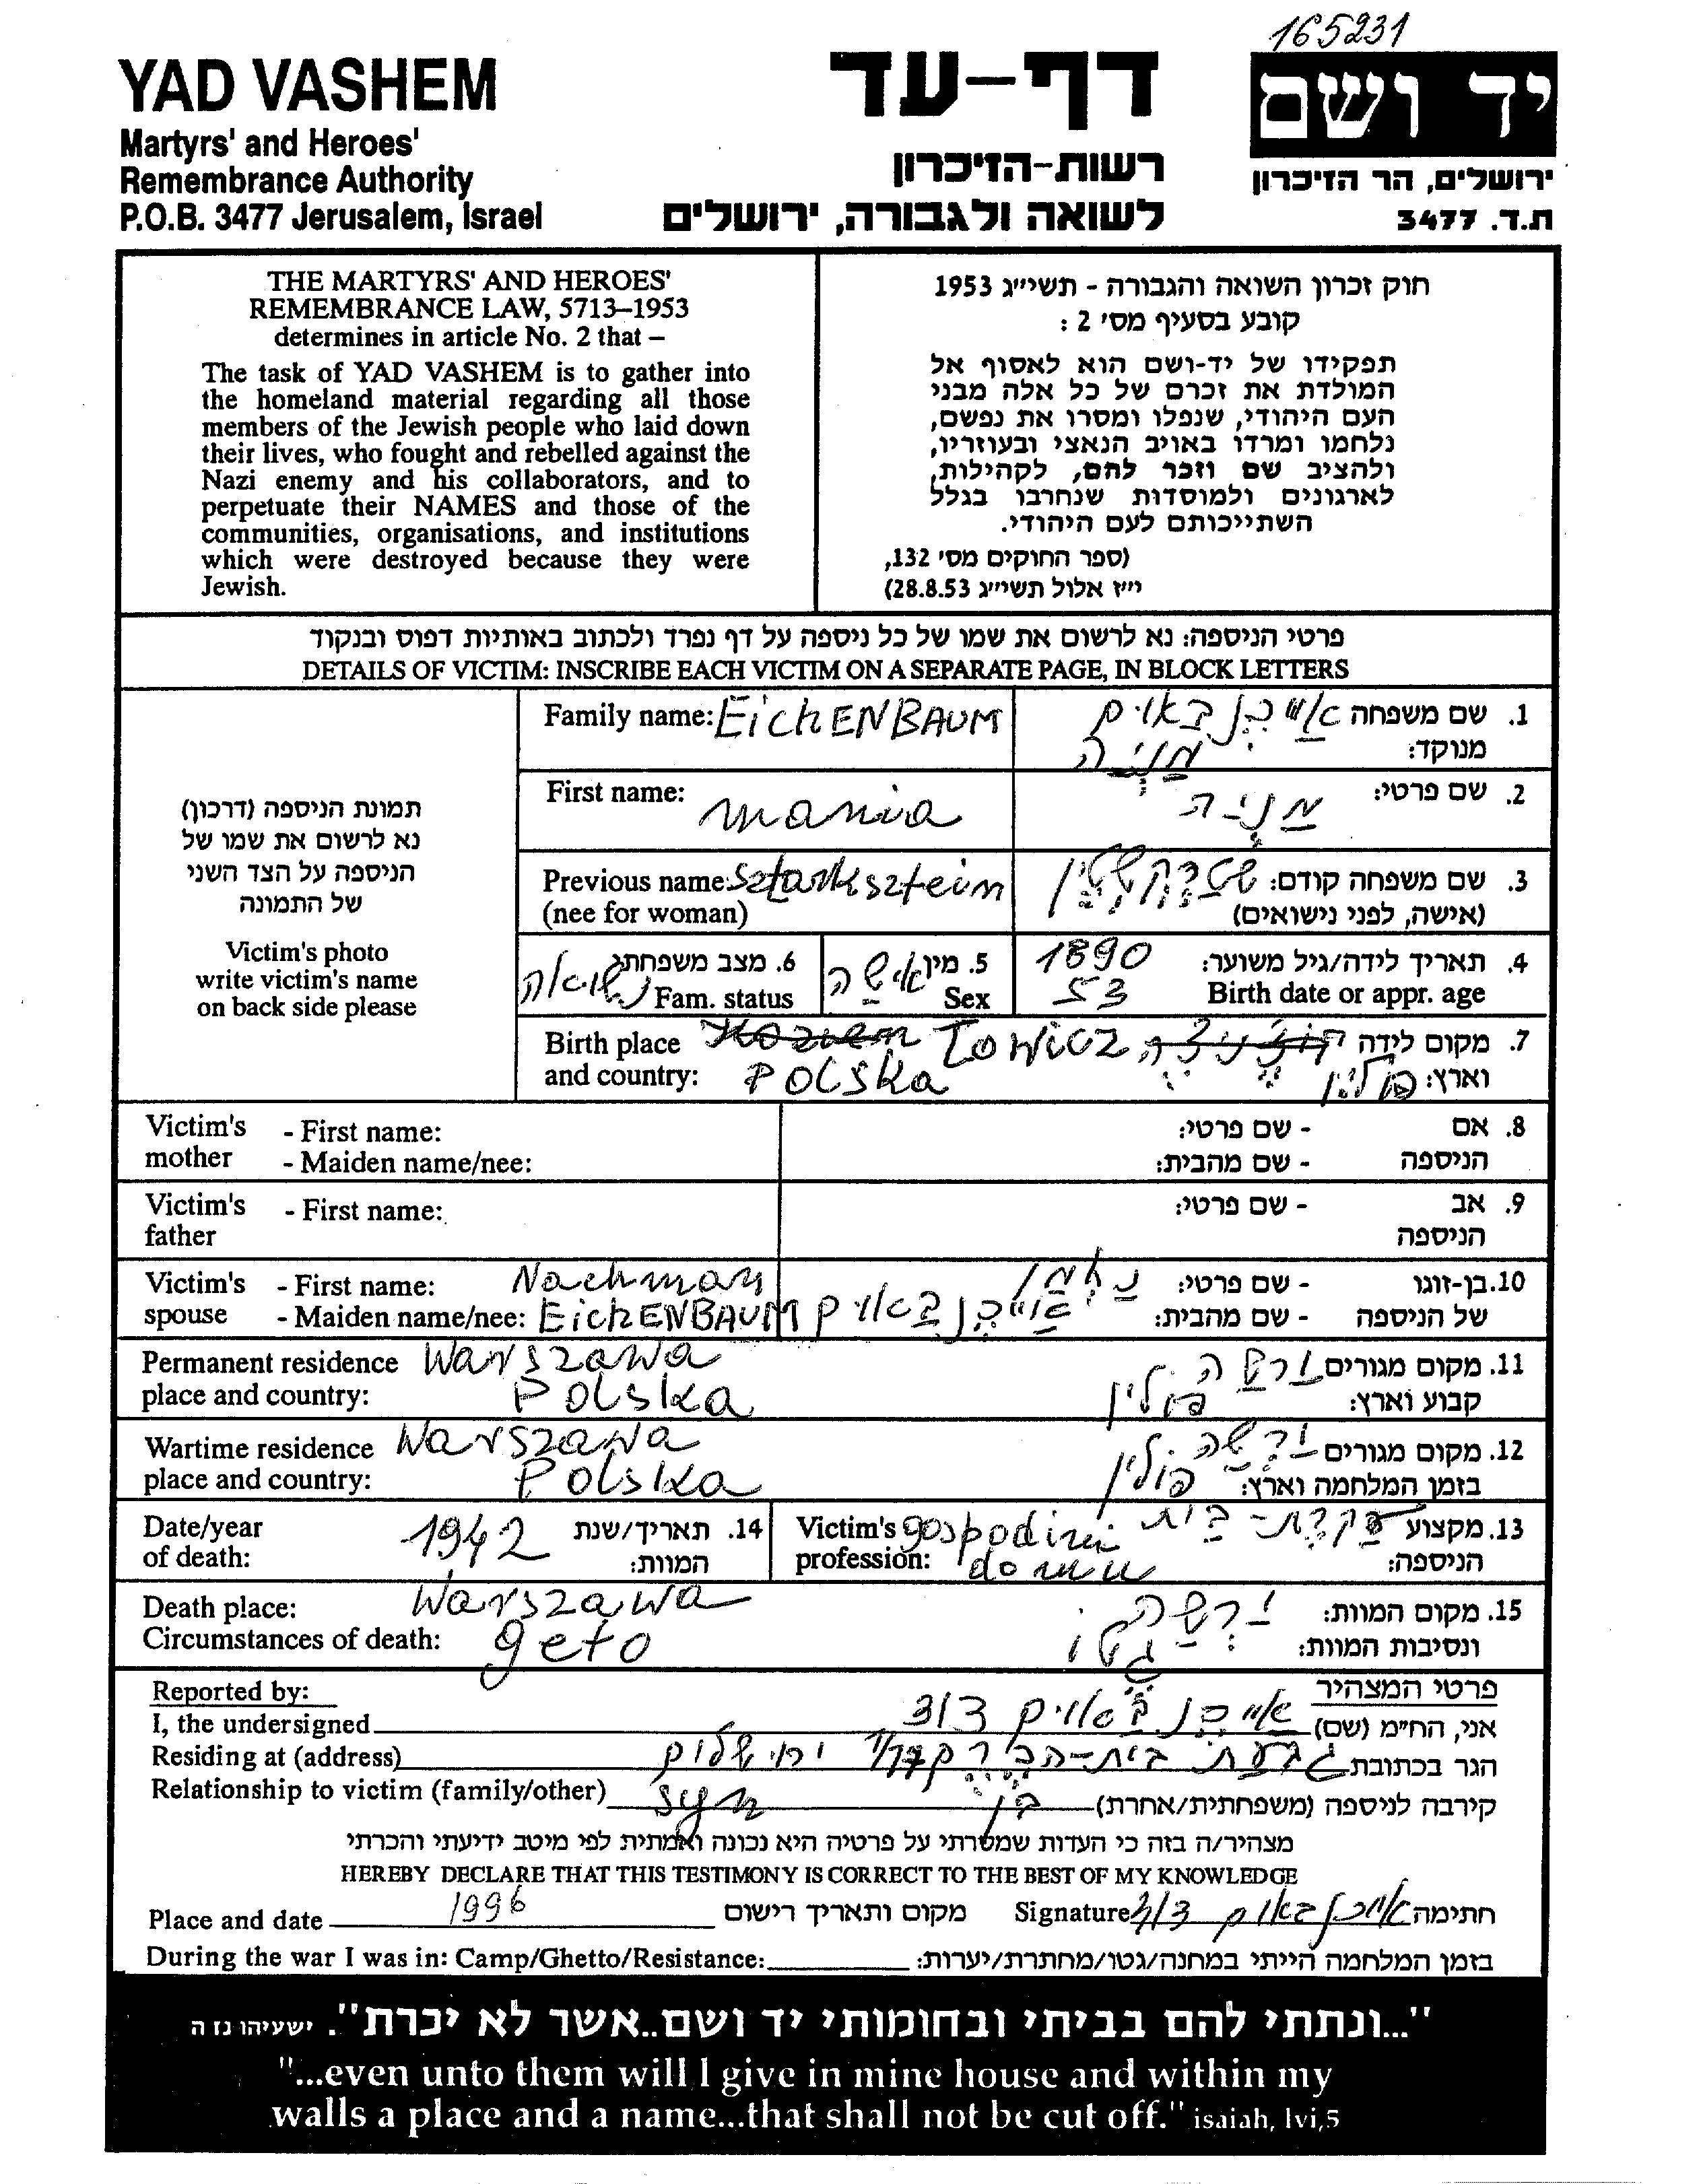 165231
YAD VASHEM
Martyrs' and Heroes'
Remembrance Authority
P.O.B. 3477 Jerusalem, Israel
דף-עד
רשות-הזיכרון
לשואה ולגבורה, ירושלים
יד ושם
ירושלים, הר הזיכרון
ת.ד. 3477
THE MARTYRS' AND HEROES'
REMEMBRANCE LAW, 5713–1953
determines in article No. 2 that –
The task of YAD VASHEM is to gather into
the homeland material regarding all those
members of the Jewish people who laid down
their lives, who fought and rebelled against the
Nazi enemy and his collaborators, and to
perpetuate their NAMES and those of the
communities, organisations, and institutions
which were destroyed because they were
Jewish.
חוק זכרון השואה והגבורה - תשי״ג 1953
קובע בסעיף מס׳ 2 :
תפקידו של יד-ושם הוא לאסוף אל
המולדת את זכרם של כל אלה מבני
העם היהודי, שנפלו ומסרו את נפשם,
נלחמו ומרדו באויב הנאצי ובעוזריו,
ולהציב שם וזכר להם, לקהילות,
לארגונים ולמוסדות שנחרבו בגלל
השתייכותם לעם היהודי.
(ספר החוקים מס׳ 132,
י״ז אלול תשי״ג 28.8.53)
פרטי הניספה: נא לרשום את שמו של כל ניספה על דף נפרד ולכתוב באותיות דפוס ובנקוד
DETAILS OF VICTIM: INSCRIBE EACH VICTIM ON A SEPARATE PAGE, IN BLOCK LETTERS
תמונת הניספה (דרכון)
נא לרשום את שמו של
הניספה על הצד השני
של התמונה
Victim's photo
write victim's name
on back side please
Family name: EichENBAUM
1. שם משפחה אייכנבאום
מנוקד: מניה
First name: mania
2. שם פרטי: מניה
Previous name: Sztarksztein
(nee for woman)
3. שם משפחה קודם: שטרקשטין
(אישה, לפני נישואים)
4. תאריך לידה/גיל משוער: 1890
Birth date or appr. age 53
5. מין אישה
Sex
6. מצב משפחתי נשואה
Fam. status
Birth place Łowicz
and country: Polska
7. מקום לידה
וארץ: פולין
Victim's - First name:
mother - Maiden name/nee:
8. אם - שם פרטי:
הניספה - שם מהבית:
Victim's - First name:
father
9. אב - שם פרטי:
הניספה
Victim's - First name: Nachman
spouse - Maiden name/nee: EichENBAUM
10. בן-זוגו - שם פרטי: נחמן
של הניספה - שם מהבית: אייכנבאום
Permanent residence Warszawa
place and country: Polska
11. מקום מגורים ורשה
קבוע וארץ: פולין
Wartime residence Warszawa
place and country: Polska
12. מקום מגורים ורשה
בזמן המלחמה וארץ: פולין
Date/year 1942
of death:
14. תאריך/שנת
המוות:
Victim's gospodini
profession: domu
13. מקצוע עקרת-בית
הניספה:
Death place: Warszawa
Circumstances of death: geto
15. מקום המוות: ורשה
ונסיבות המוות: גטו
Reported by:
פרטי המצהיר
I, the undersigned
אני, הח״מ (שם) אייכנבאום דוד
Residing at (address)
הגר בכתובת גבעת בית-הכרם ירושלים
Relationship to victim (family/other) syn
קירבה לניספה (משפחתית/אחרת) בן
מצהיר/ה בזה כי העדות שמסרתי על פרטיה היא נכונה ואמתית לפי מיטב ידיעתי והכרתי
HEREBY DECLARE THAT THIS TESTIMONY IS CORRECT TO THE BEST OF MY KNOWLEDGE
Place and date 1996 מקום ותאריך רישום
Signature אייכנבאום דוד חתימה
During the war I was in: Camp/Ghetto/Resistance:
בזמן המלחמה הייתי במחנה/גטו/מחתרת/יערות:
"...ונתתי להם בביתי ובחומותי יד ושם..אשר לא יכרת". ישעיהו נו ה
"...even unto them will I give in mine house and within my
walls a place and a name...that shall not be cut off." isaiah, lvi,5